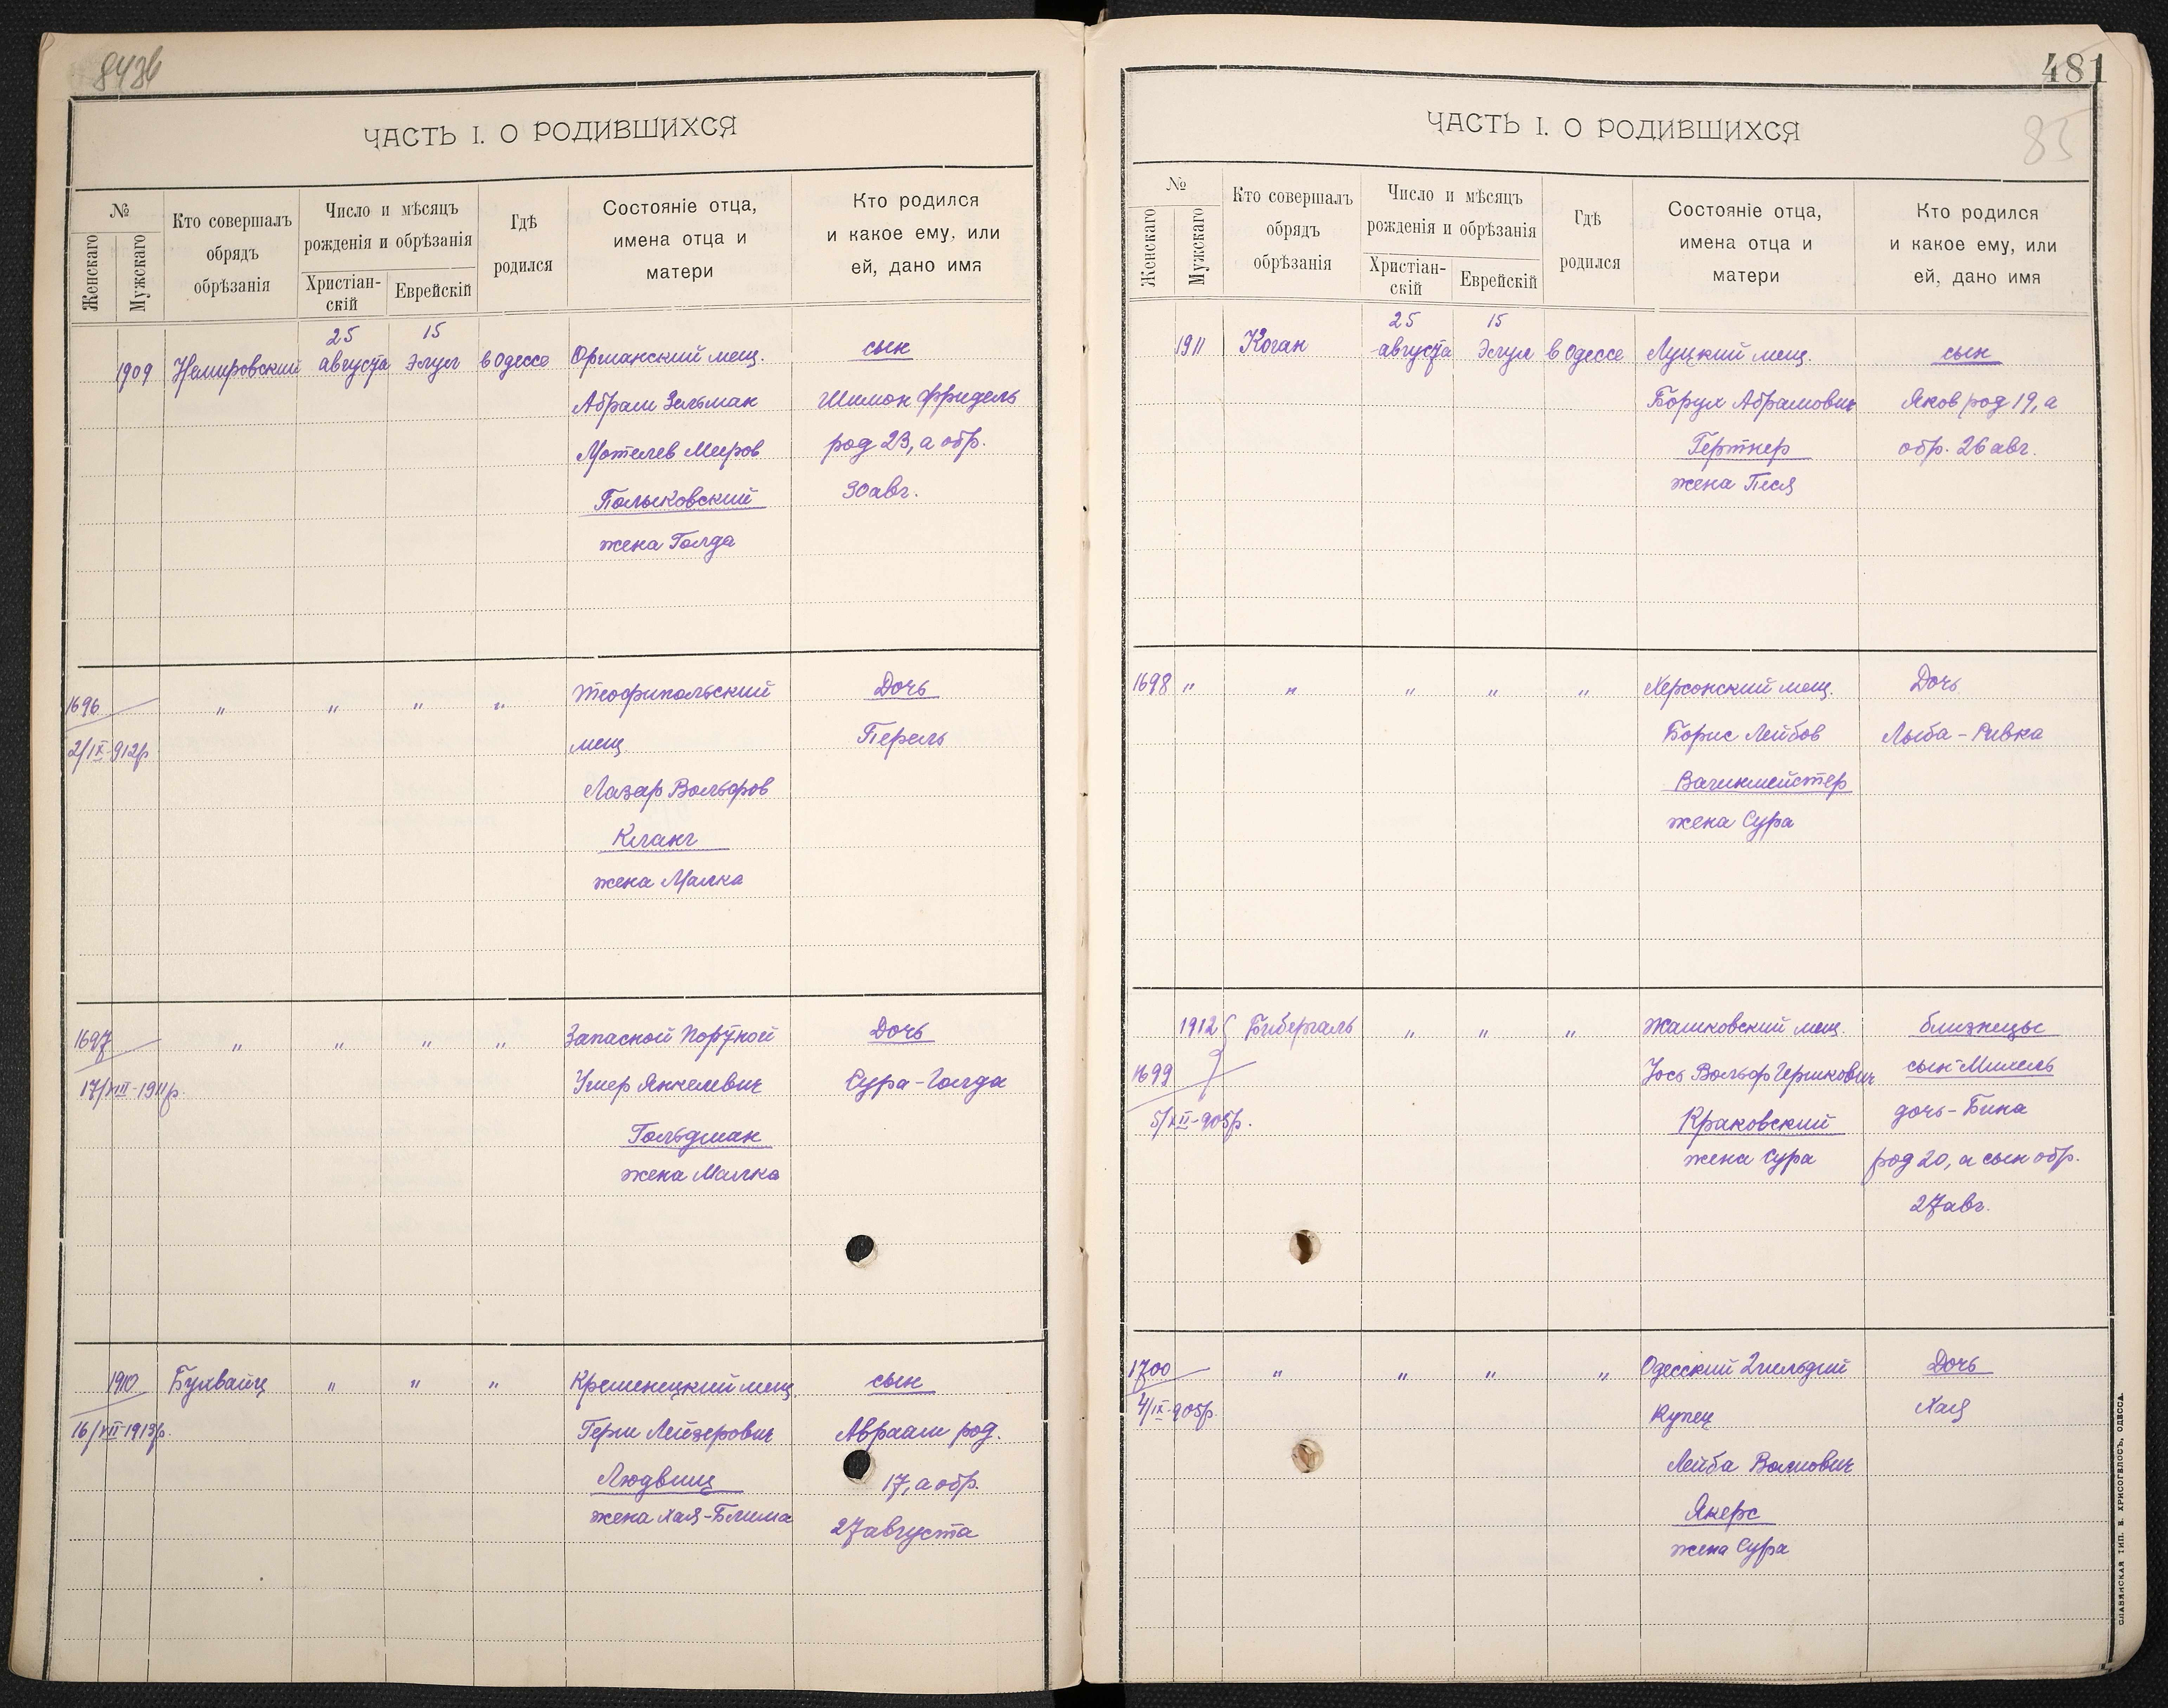 8436
ЧАСТЬ I. О РОДИВШИХСЯ
№
Женскаго
Мужскаго
Кто совершалъ
обрядъ
обрѣзанія
Число и мѣсяцъ
рожденія и обрѣзанія
Христіан-
скій
Еврейскій
Гдѣ
родился
Состояніе отца,
имена отца и
матери
Кто родился
и какое ему, или
ей, дано имя
25 15
1909 Немировский августа Элул в Одессе Оргианский мещ. сын
Абрам Зельман Шимон Фридель
Мотелев Меиров род 23, а обр.
Полыковский 30 авг.
жена Голда
1696 " " " " Теофипольский Дочь
2/IX-912р мещ Перель
Лазар Вольфов
Кланг
жена Малка
1697 " " " " Запасной Дочь
17/VIII-1911р. Умер Янкелевич Сура-Голда
Гольдман
жена Малка
1910 Бухвайц " " " Кременецкий мещ. сын
16/VII-1913р. Герш Лейзерович Авраам род.
Людвиц 17, а обр.
жена Хая-Блима 27 августа
481
85
ЧАСТЬ I. О РОДИВШИХСЯ
№
Женскаго
Мужскаго
Кто совершалъ
обрядъ
обрѣзанія
Число и мѣсяцъ
рожденія и обрѣзанія
Христіан-
скій
Еврейскій
Гдѣ
родился
Состояніе отца,
имена отца и
матери
Кто родился
и какое ему, или
ей, дано имя
25 15
1911 Коган августа Элул в Одессе Луцкий мещ. сын
Борух Абрамович Яков род 19, а
Гертнер обр. 26 авг.
жена Песя
1698 " " " " " Херсонский мещ. Дочь
Борис Лейбов Лыба-Ривка
Вагинмейстер
жена Сура
1912 Бибергаль " " " Жашковский мещ. близнецы
1699 Иось Вольф Гершкович сын-Михель
5/XII-905р. Краковский дочь-Бина
жена Сура род 20, а сын обр.
27 авг.
1700 " " " " Одесский 2 гильдий Дочь
4/IX-905р. Купец Хая
Лейба Волкович
Якерс
жена Сура
СЛАВЯНСКАЯ ТИП. Е. ХРИСОГЕЛОСЪ, ОДЕССА.